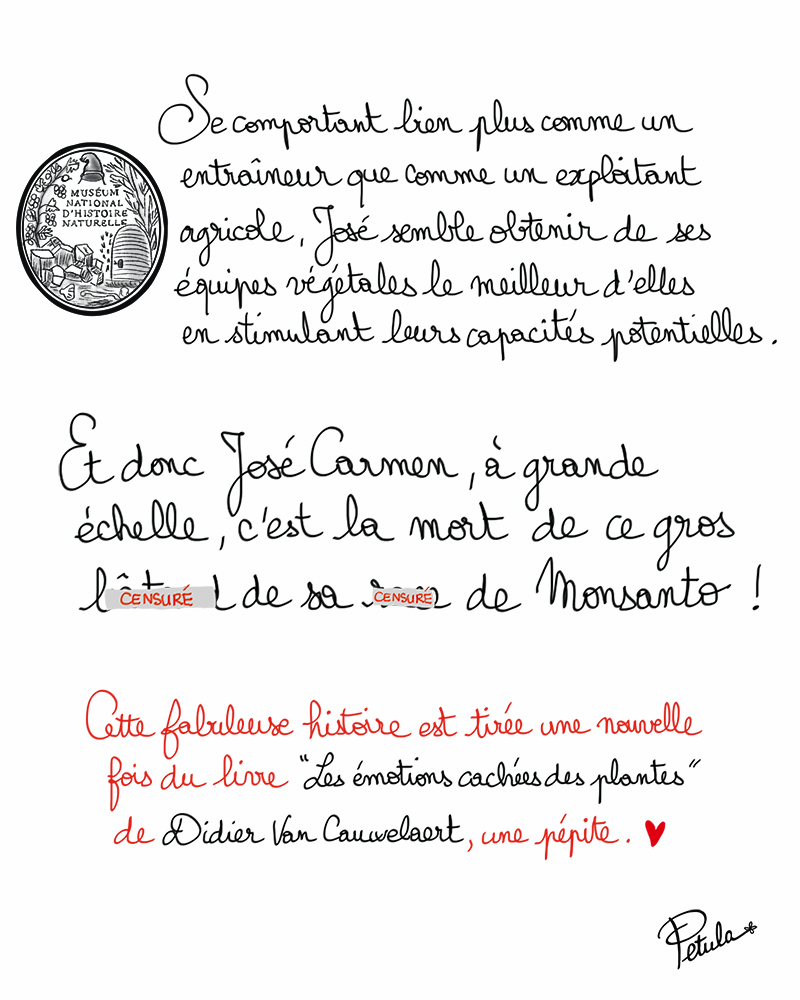 MUSÉUM
NATIONAL
D'HISTOIRE
NATURELLE
Se comportant bien plus comme un
entraîneur que comme un exploitant
agricole, José semble obtenir de ses
équipes végétales le meilleur d'elles
en stimulant leurs capacités potentielles.
Et donc José Carmen, à grande
échelle, c'est la mort de ce gros
CENSURÉ de sa CENSURÉ de Monsanto !
Cette fabuleuse histoire est tirée une nouvelle
fois du livre "Les émotions cachées des plantes"
de Didier Van Cauwelaert, une pépite.
Petula